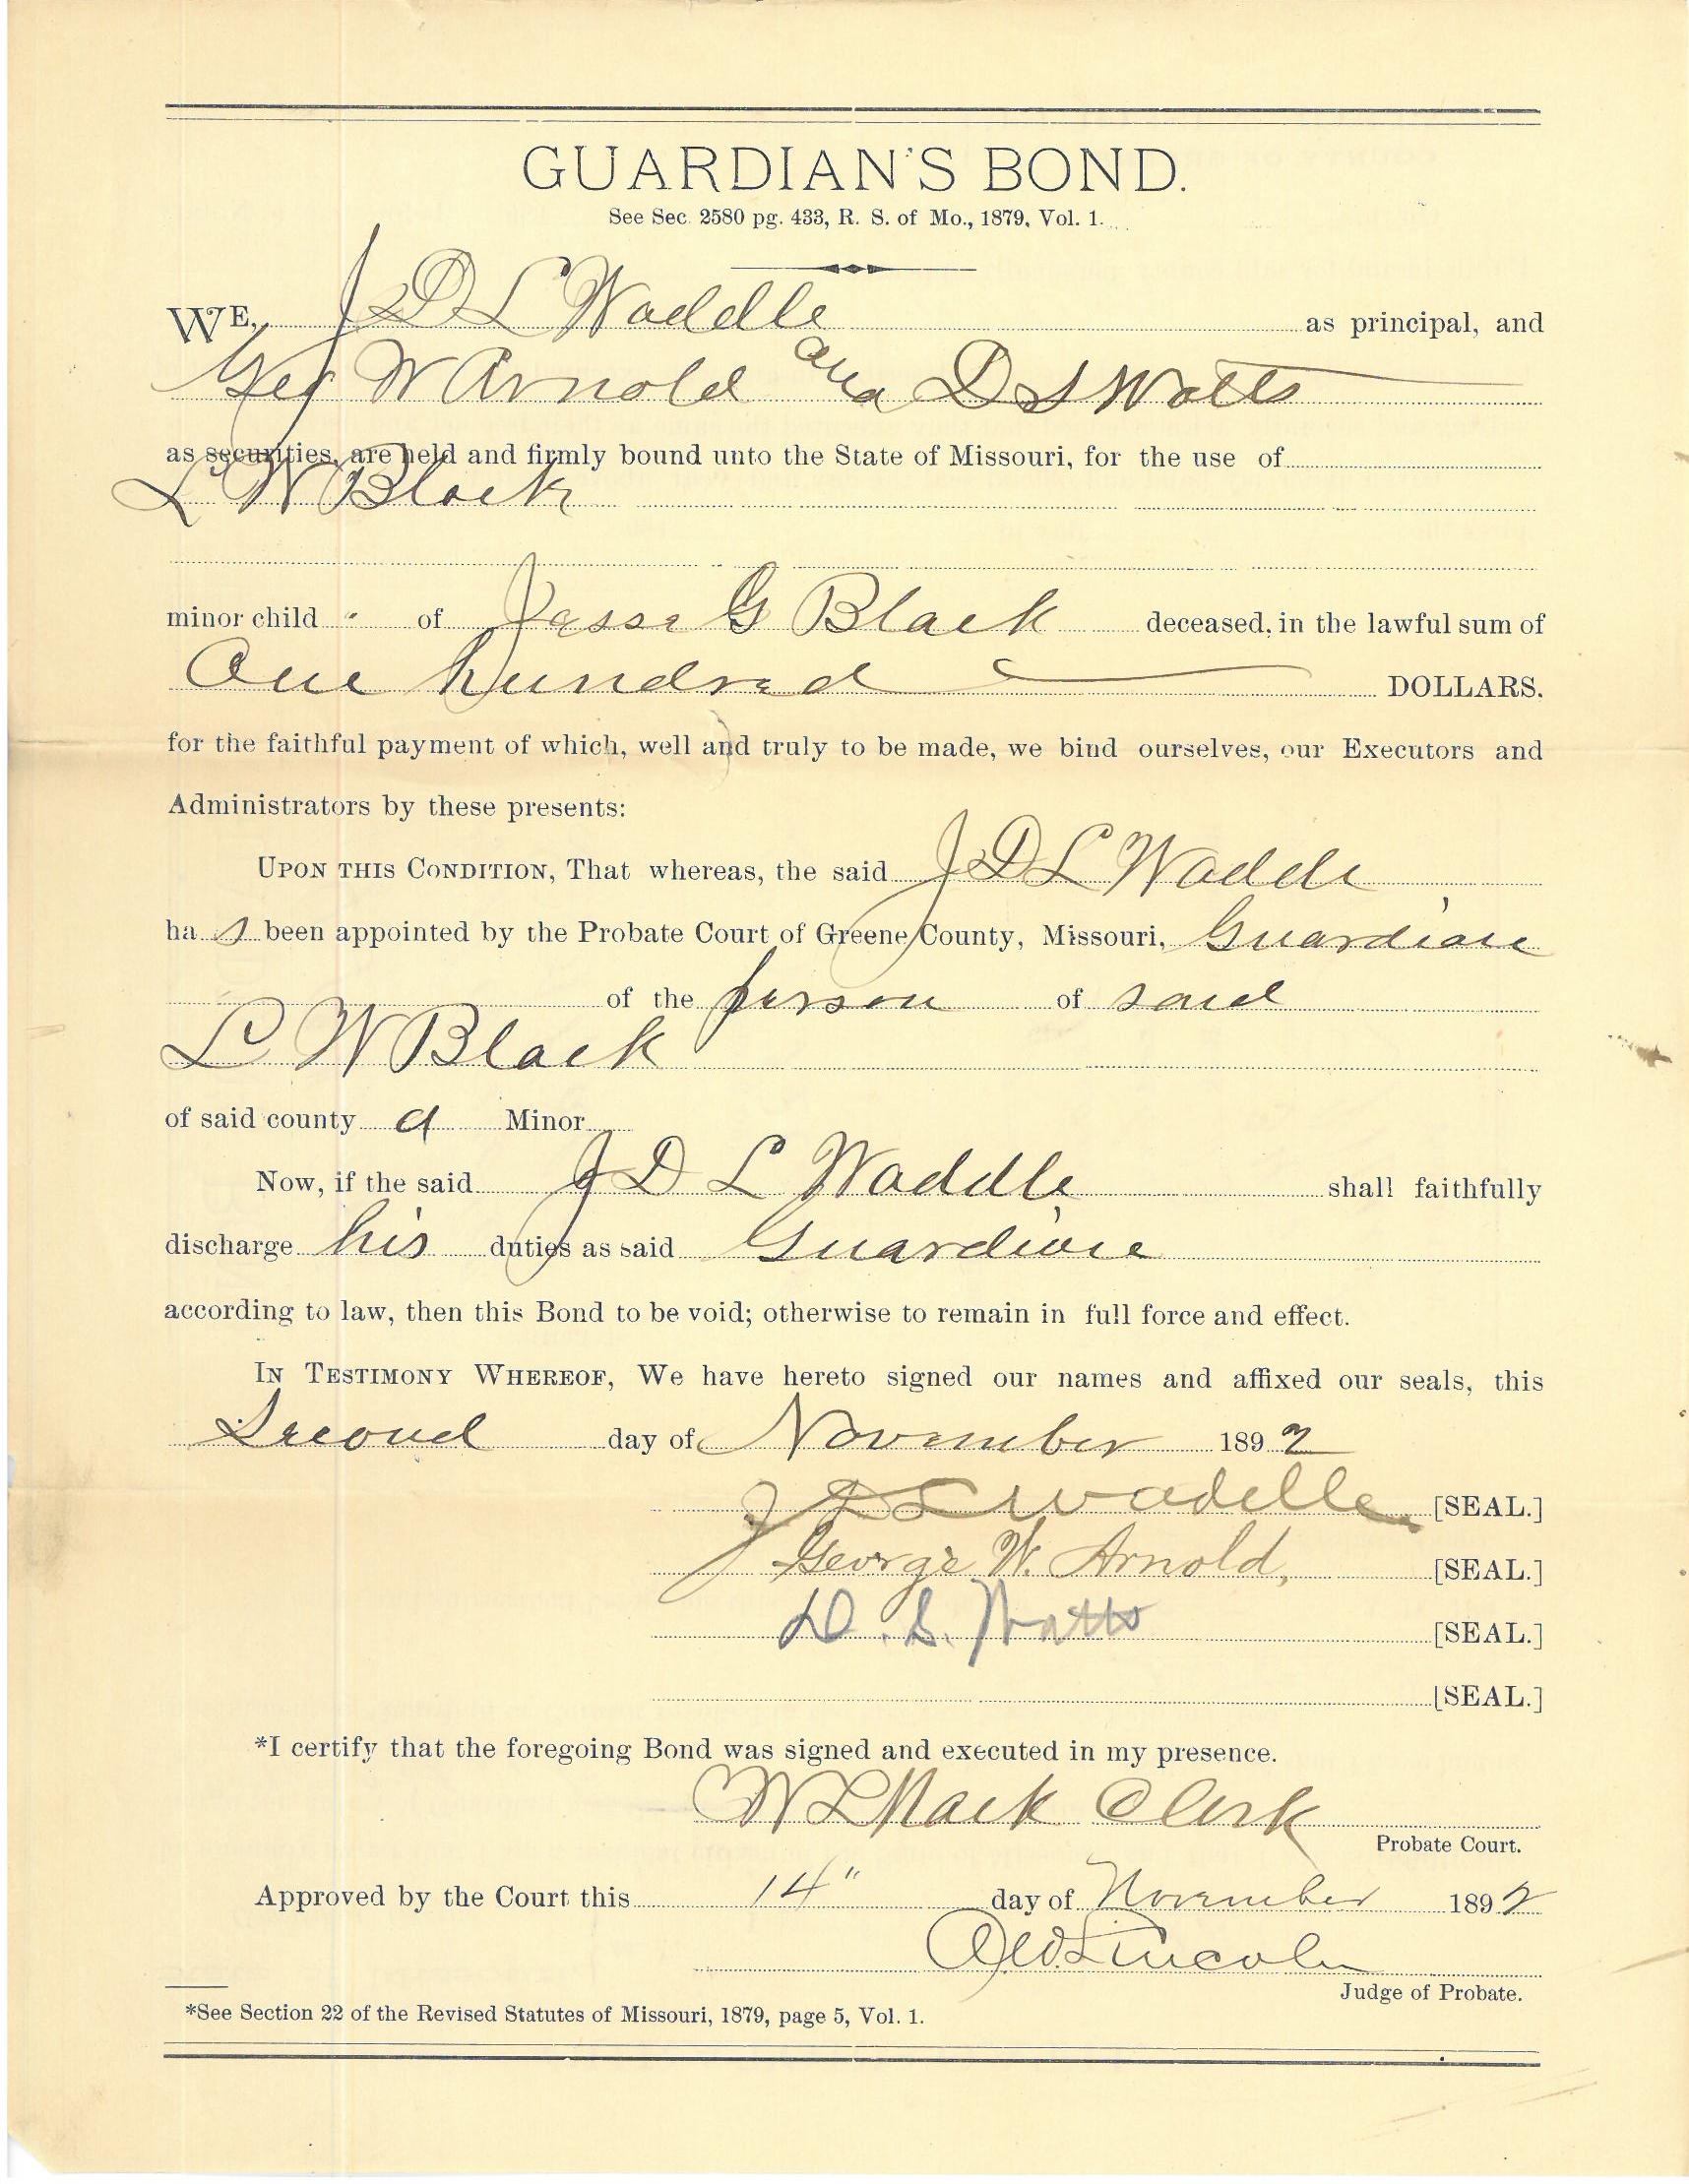 GUARDIAN'S BOND.
See Sec. 2580 pg. 433, R. S. of Mo., 1879, Vol. 1.
WE, J D L Waddle as principal, and
Geo W Arnold and D S Watts
as securities, are held and firmly bound unto the State of Missouri, for the use of
L W Black
minor child of Jesse G Black deceased, in the lawful sum of
One hundred DOLLARS.
for the faithful payment of which, well and truly to be made, we bind ourselves, our Executors and
Administrators by these presents:
UPON THIS CONDITION, That whereas, the said J D L Waddle
has been appointed by the Probate Court of Greene County, Missouri, Guardian
of the person of said
L W Black
of said county a Minor
Now, if the said J D L Waddle shall faithfully
discharge his duties as said Guardian
according to law, then this Bond to be void; otherwise to remain in full force and effect.
IN TESTIMONY WHEREOF, We have hereto signed our names and affixed our seals, this
Second day of November 1892
J D L Waddle [SEAL.]
George W. Arnold, [SEAL.]
D. S. Watts [SEAL.]
[SEAL.]
*I certify that the foregoing Bond was signed and executed in my presence.
W L Mack Clerk
Probate Court.
Approved by the Court this 14" day of November 1892
A W. Lincoln
Judge of Probate.
*See Section 22 of the Revised Statutes of Missouri, 1879, page 5, Vol. 1.